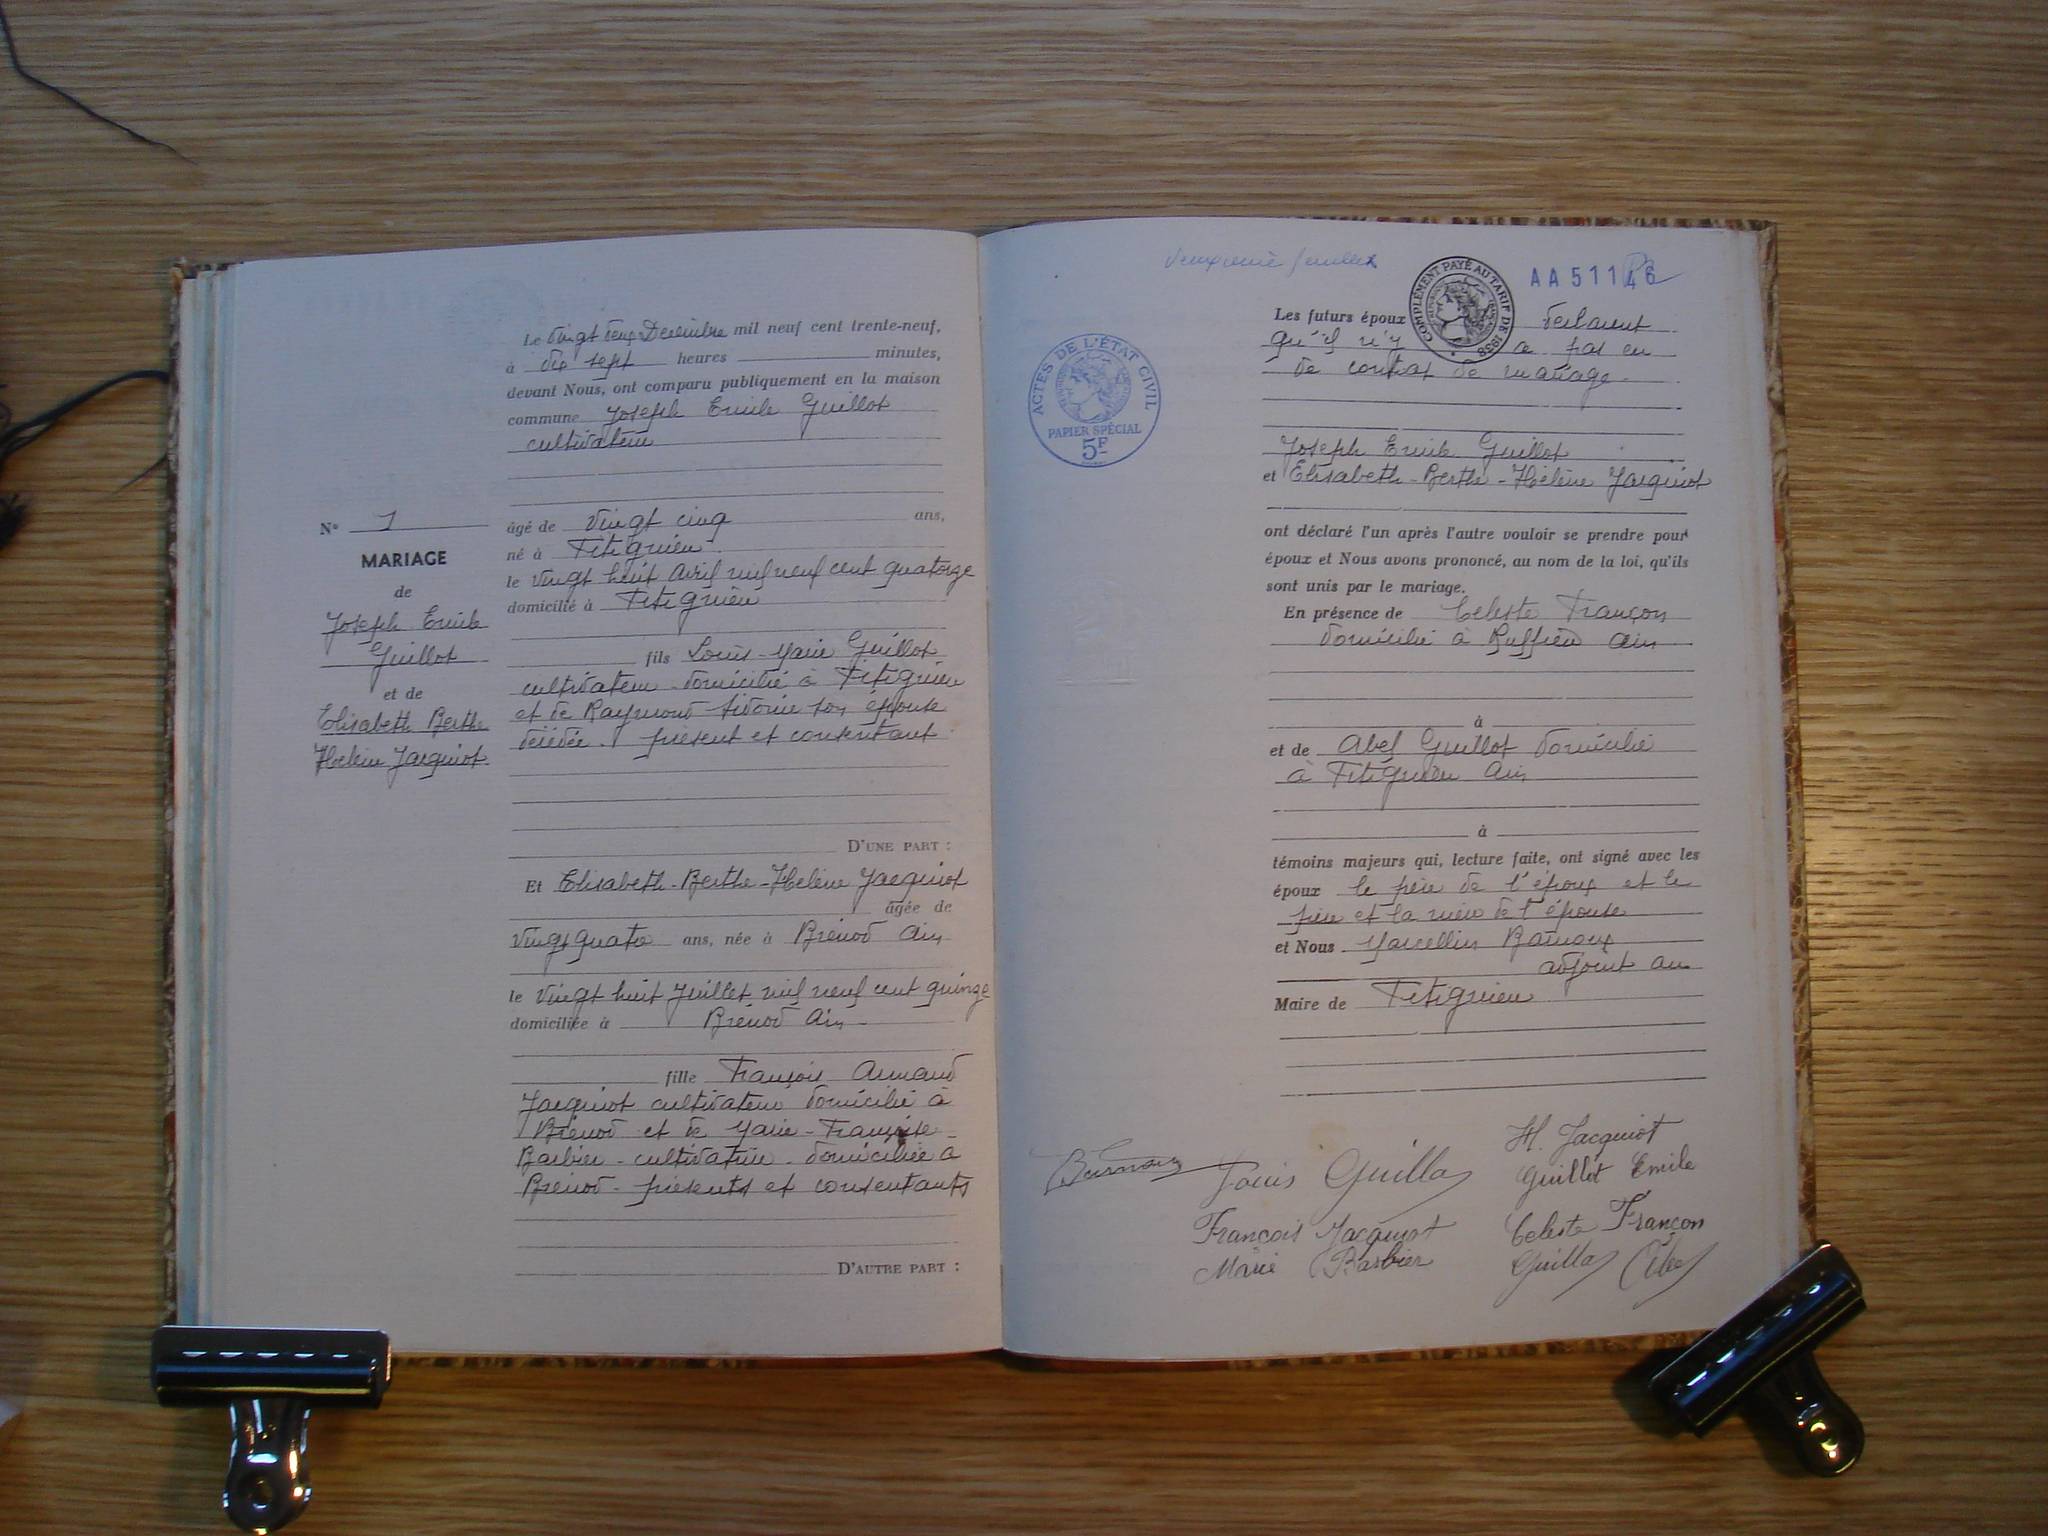 Le vingt deux Décembre mil neuf cent trente-neuf,
à dix sept heures minutes,
devant Nous, ont comparu publiquement en la maison
commune Joseph Emile Guillot
cultivateur
N° 1
MARIAGE
de
Joseph Emile
Guillot
et de
Elisabeth Berthe
Hélène Jacquiot.
âgé de vingt cinq ans,
né à Fitignieu
le vingt huit Avril mil neuf cent quatorze
domicilié à Fitignieu
fils Louis-Marie Guillot
cultivateur domicilié à Fitignieu
et de Raymond Sidonie son épouse
décédée. présent et consentant
D'UNE PART :
Et Elisabeth-Berthe-Hélène Jacquiot
âgée de
vingt quatre ans, née à Brénod Ain
le vingt huit Juillet mil neuf cent quinze
domiciliée à Brénod Ain
fille François Armand
Jacquiot cultivateur domicilié à
Brénod et de Marie-Françoise
Barbier-cultivatrice-domiciliée à
Brénod-présents et consentants
D'AUTRE PART :
Deuxième feuillet
COMPLÉMENT PAYÉ AU TARIF DE 1938
AA 51146
ACTES DE L'ÉTAT CIVIL
PAPIER SPÉCIAL
5F
Les futurs époux déclarent
qu'il n'y a pas eu
de contrat de mariage.
Joseph Emile Guillot
et Elisabeth-Berthe-Hélène Jacquiot
ont déclaré l'un après l'autre vouloir se prendre pour
époux et Nous avons prononcé, au nom de la loi, qu'ils
sont unis par le mariage.
En présence de Celeste Françon
domicilié à Ruffieu Ain
à
et de Abel Guillot domicilié
à Fitignieu Ain
à
témoins majeurs qui, lecture faite, ont signé avec les
époux le père de l'époux et le
père et la mère de l'épouse
et Nous Marcellin
adjoint au
Maire de Fitignieu
H. Jacquiot
Louis Guillot
Guillot Emile
François Jacquiot
Celeste Françon
Marie Barbier
Guillot Abel